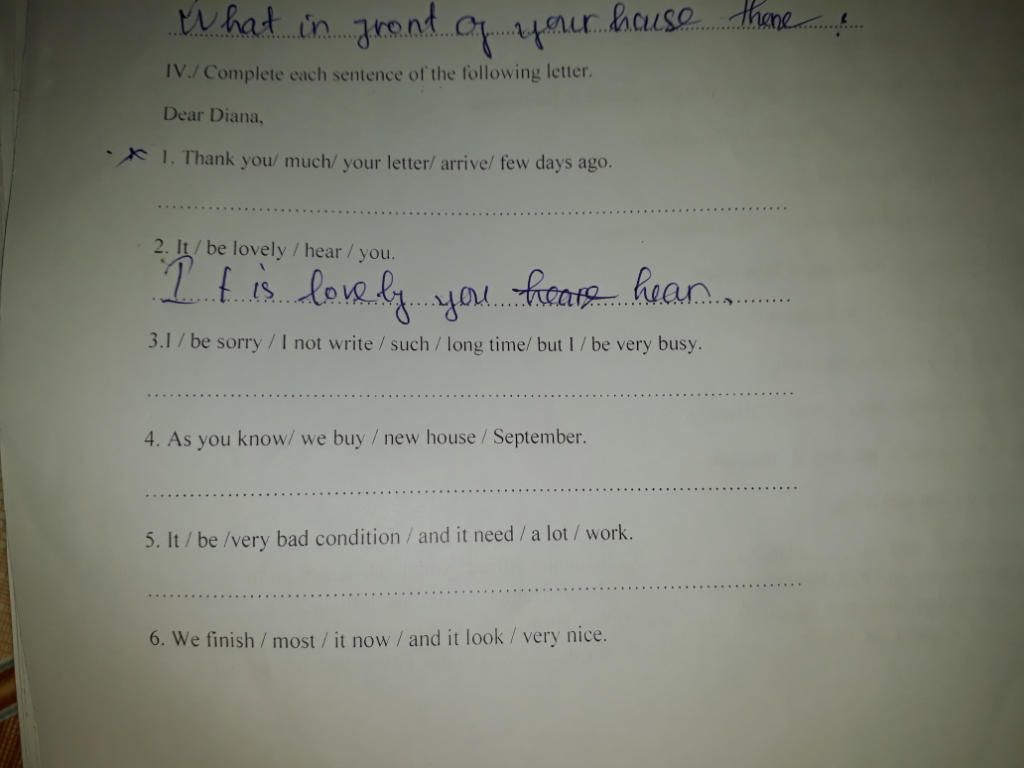 What in front of your house there ?
IV./ Complete each sentence of the following letter.
Dear Diana,
1. Thank you/ much/ your letter/ arrive/ few days ago.
2. It / be lovely / hear / you.
It is lovely you heare hear.
3.I / be sorry / I not write / such / long time/ but I / be very busy.
4. As you know/ we buy / new house / September.
5. It / be /very bad condition / and it need / a lot / work.
6. We finish / most / it now / and it look / very nice.